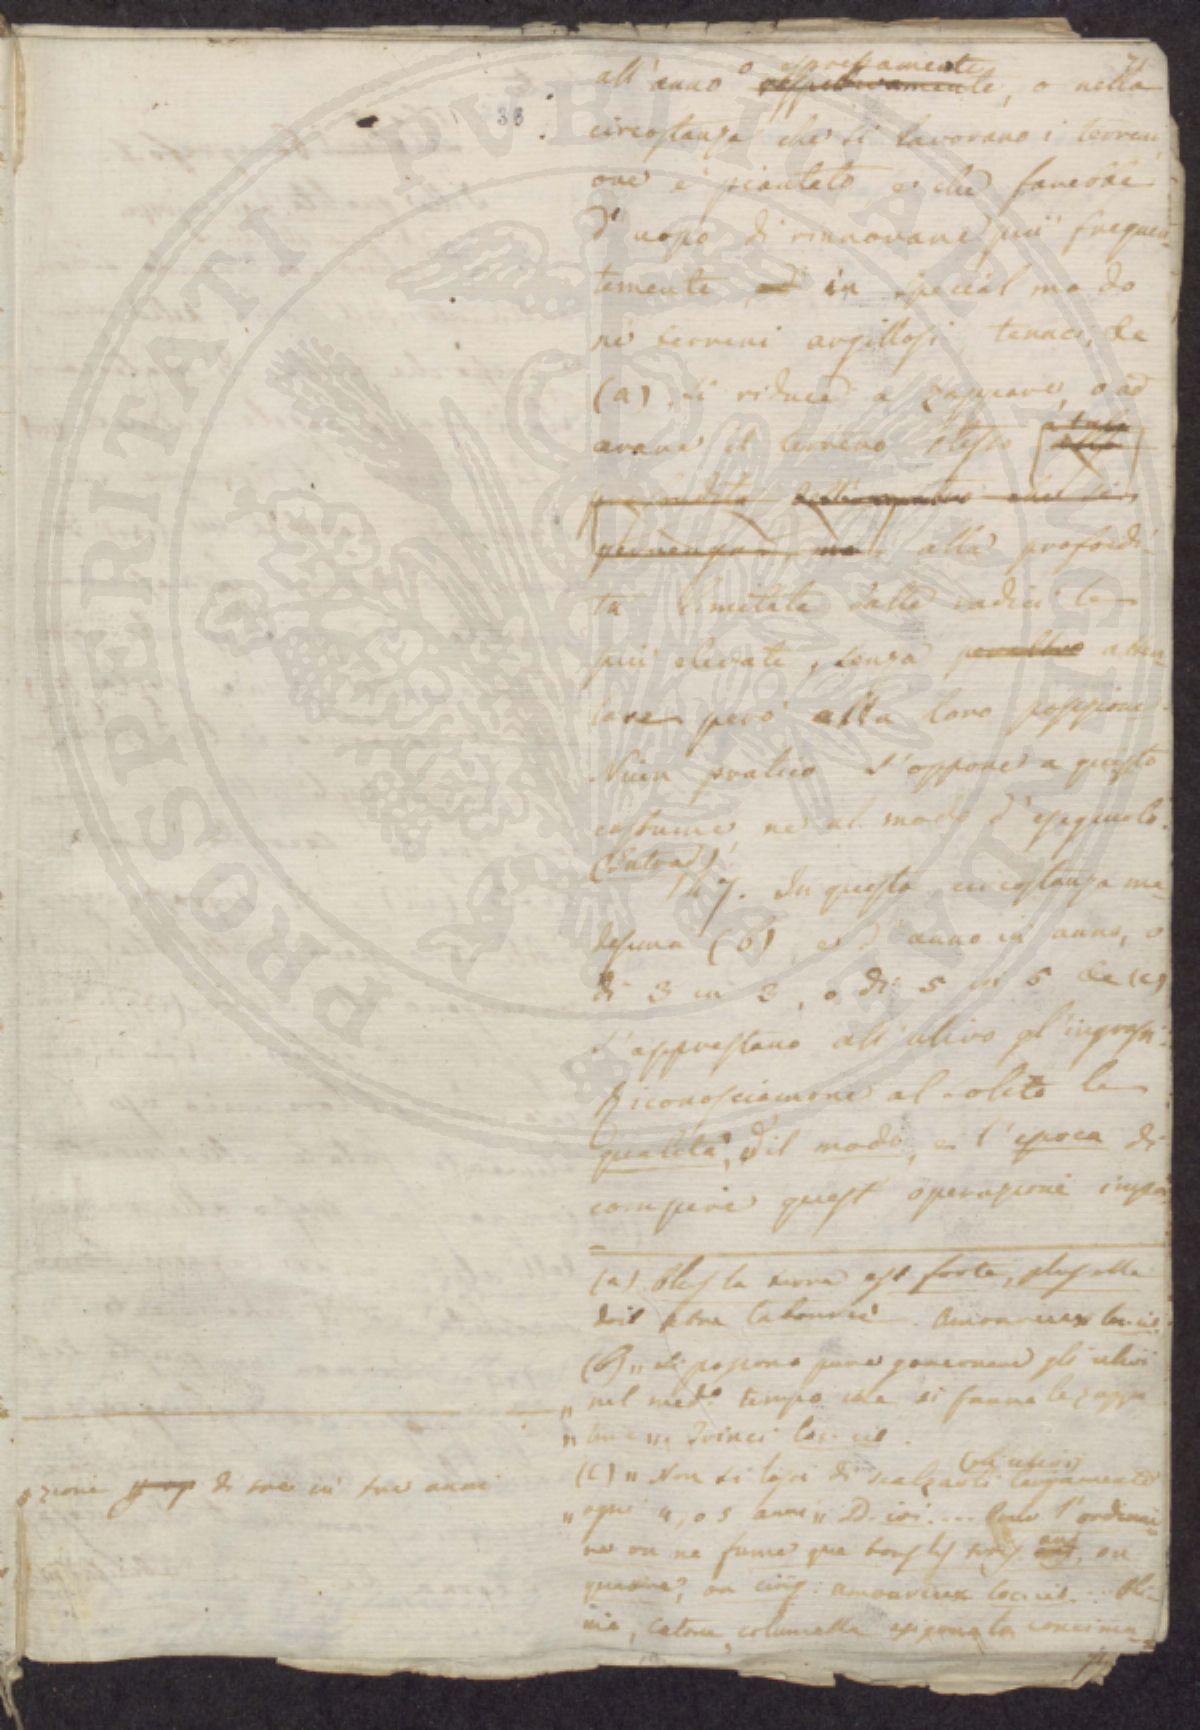 71
38
o espressamente
all'anno respettivamente, o nella
circostanza che si lavorano i terreni
ove è piantato e che farebbe
d'uopo di rinnovare più frequen-
temente, ed in special modo
ne' terreni argillosi, tenaci, &c
(a), si riduce a zappare, o ad
arare il terreno stesso a tale
profondità che si
pervengano, ma alla profondi
tà limitata dalle radici le
più elevate, senza peraltro atten-
tare però alla loro posizione.
Niun pratico s'oppone a questo
costume ne al modo d'eseguirlo.
(Entrad)
147. In questa circostanza me-
desima (b), e d'anno in anno, o
di 3 in 3, o di 5 in 5 &c (c)
s'apprestano all'ulivo gl'ingrassi.
Riconosciamone al solito la
qualità, il modo, e l'epoca di
compire quest'operazione impor
(a) Plus la terre est forte, plus elle
doit etre labourée. Amoureux loc. cit.
(b) „ Si possono pure governare gli ulivi
„ nel medo. tempo che si fanno le zappa
„ ture „. Trinci loc. cit.
(gli ulivi)
(c) „ Non si lasci di scalzarli largamente
„ ogni 4, o 5 anni „ D. ivi .... Pour l'ordinai-
re on ne fume que tous les trois ans, ou
quatre, ou cinq. Amoureux loc. cit. ... Pli-
nio, Catone, Columella esigono la concima-
zione di tre in tre anni
PROSPERITATI PUBLICAE AUGENDAE